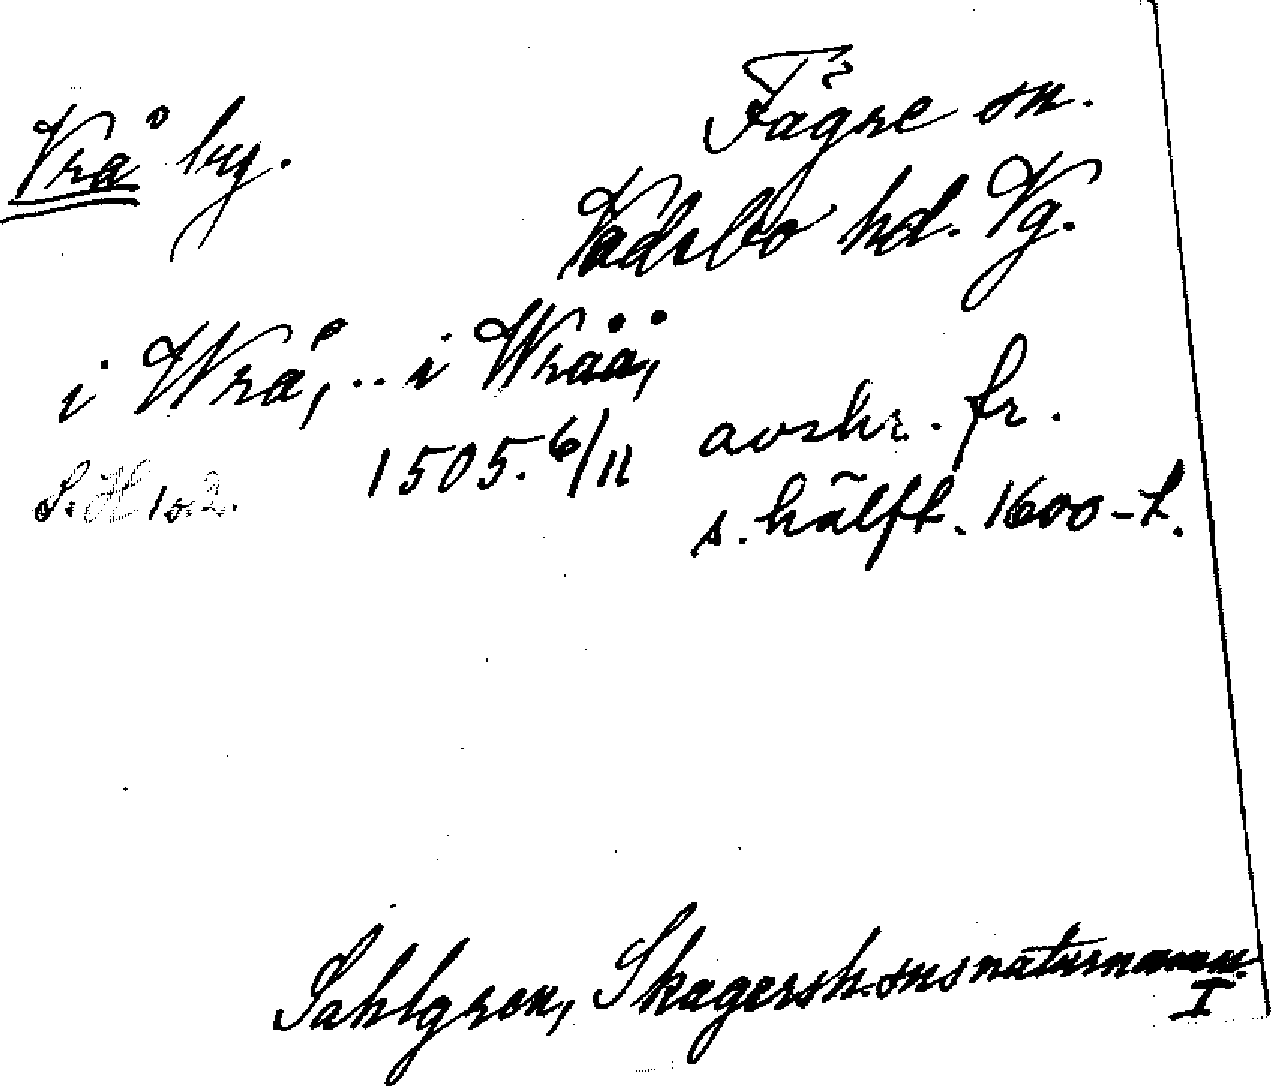 Vrå by.
Fägre sn.
Vadsbo hd. Vg.
i Wrå, .. i Wråå,
1505. 6/11 avskr. fr.
s. hälft. 1600-t.
S. H 102.
Sahlgren, Skagersh. sns naturnamn.
I